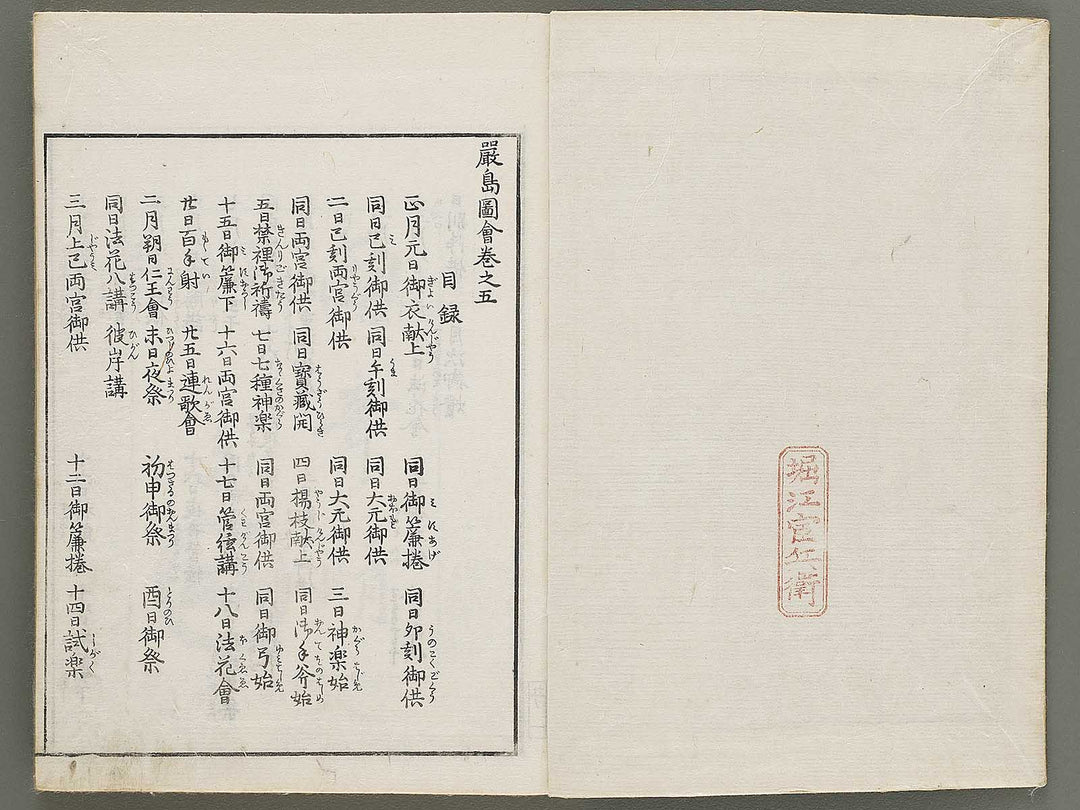 堀江官兵衛
嚴島圖會巻之五
目録
正月元日御衣献上 同日御簾捲 同日卯刻御供
同日巳刻御供 同日午刻御供 同日大元御供
二日巳刻両宮御供 同日大元御供 三日神楽始
同日両宮御供 同日寳藏開 四日楊枝献上 同日御手斧始
五日禁裡御祈禱 七日七種神楽 同日両宮御供 同日御弓始
十五日御簾下 十六日両宮御供 十七日管絃講 十八日法花會
廿日百手射 廿五日連歌會
二月朔日仁王會 未日夜祭 初申御祭 酉日御祭
同日法花八講 彼岸講
三月上巳両宮御供 十二日御簾捲 十四日試楽